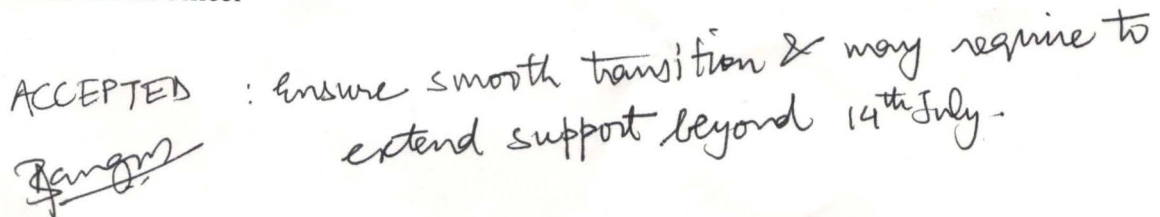 ACCEPTED : Ensure smooth transition & may require to
extend support beyond 14th July.